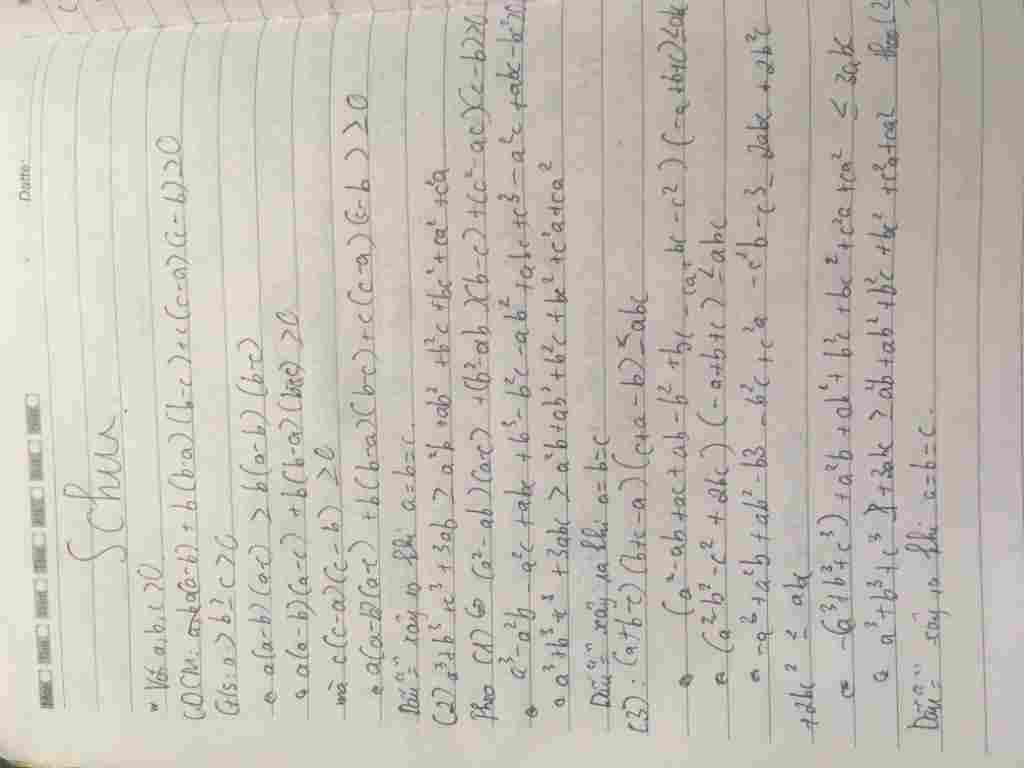 Date:
Schur
Với a,b,c ≥0
(1) CM: a(a-b) + b(b-a)(b-c)+c(c-a)(c-b)≥0
G/s: a≥b≥c≥0
a(a-b)(a-c) ≥ b(a-b)(b-c)
a(a-b)(a-c) + b(b-a)(b-c) ≥0
mà c(c-a)(c-b) ≥0
a(a-b)(a-c) +b(b-a)(b-c)+c(c-a)(c-b) ≥0
Dấu "=" xảy ra khi a=b=c.
(2) a³+b³+c³+3ab ≥ a²b+ab²+b²c+bc²+ca²+c²a
(1) (a²-ab)(a-c) +(b²-ab)(b-c)+(c²-ac)(c-b)≥0
a³-a²b-a²c+abc+b³-b²c-ab²+abc+c³-
a³+b³+c³+3abc ≥ a²b+ab²+b²c+bc²+c²a+ca²
Dấu "=" xảy ra khi a=b=c
(3): (a+b-c)(b+c-a)(c+a-b)≤abc
(-a+b+c)≤abc
(a²-b²-c²+2bc)(-a+b+c)≤abc
-2abc+2b²c
+2bc² ≤ abc
-(a³+b³+c³)+a²b+ab²+b²c+bc²+c²a+ca² ≤ 3abc
a³+b³+c³+3abc ≥ a²b+ab²+b²c+bc²+c²a+ca²
Dấu "=" xảy ra khi a=b=c.